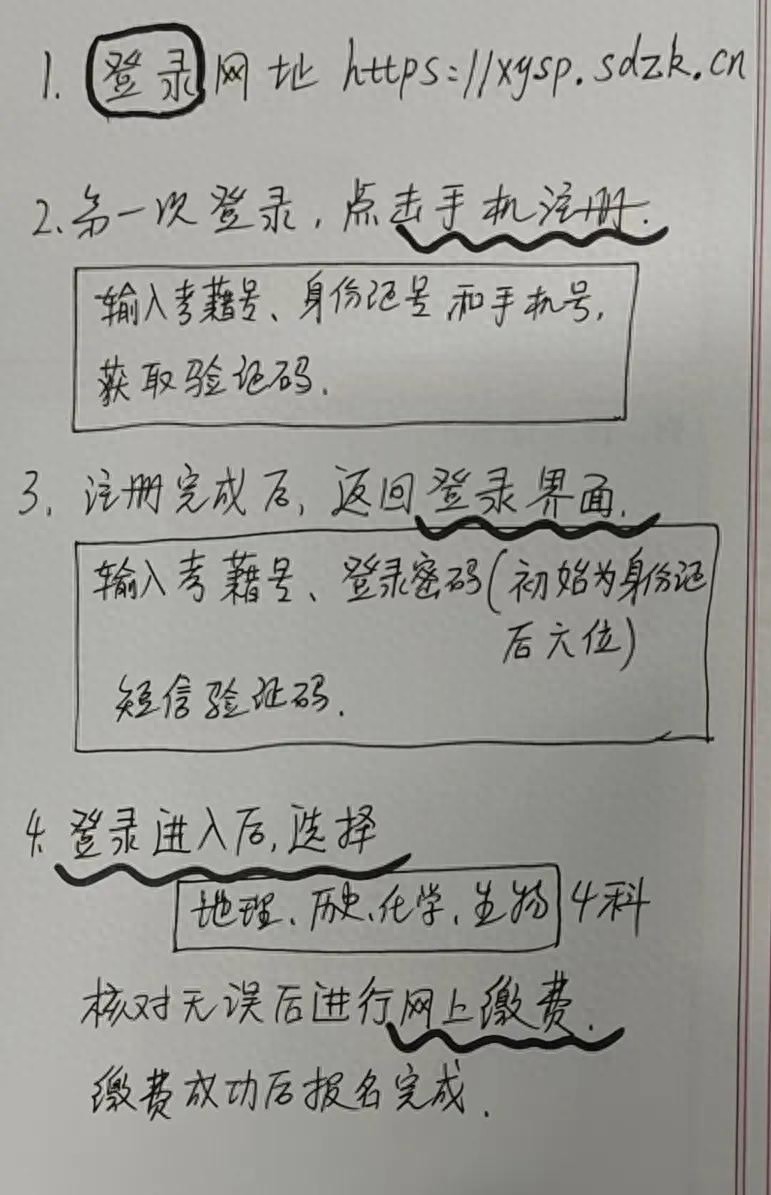 1. 登录网址 https://xysp.sdzk.cn
2. 第一次登录，点击手机注册.
输入考藉号、身份证号和手机号，
获取验证码.
3. 注册完成后，返回登录界面.
输入考藉号、登录密码(初始为身份证
后六位)
短信验证码.
4. 登录进入后，选择
地理、历史、化学、生物 4科
核对无误后进行网上缴费.
缴费成功后报名完成.